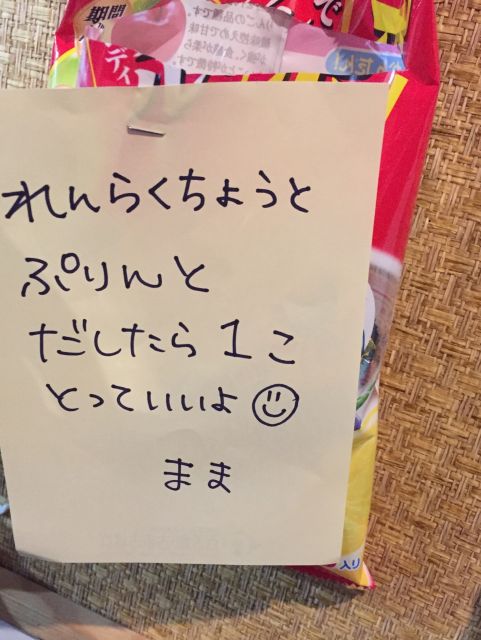 期間
ディ
で
れんらくちょうと
ぷりんと
だしたら1こ
とっていいよ
まま
入り